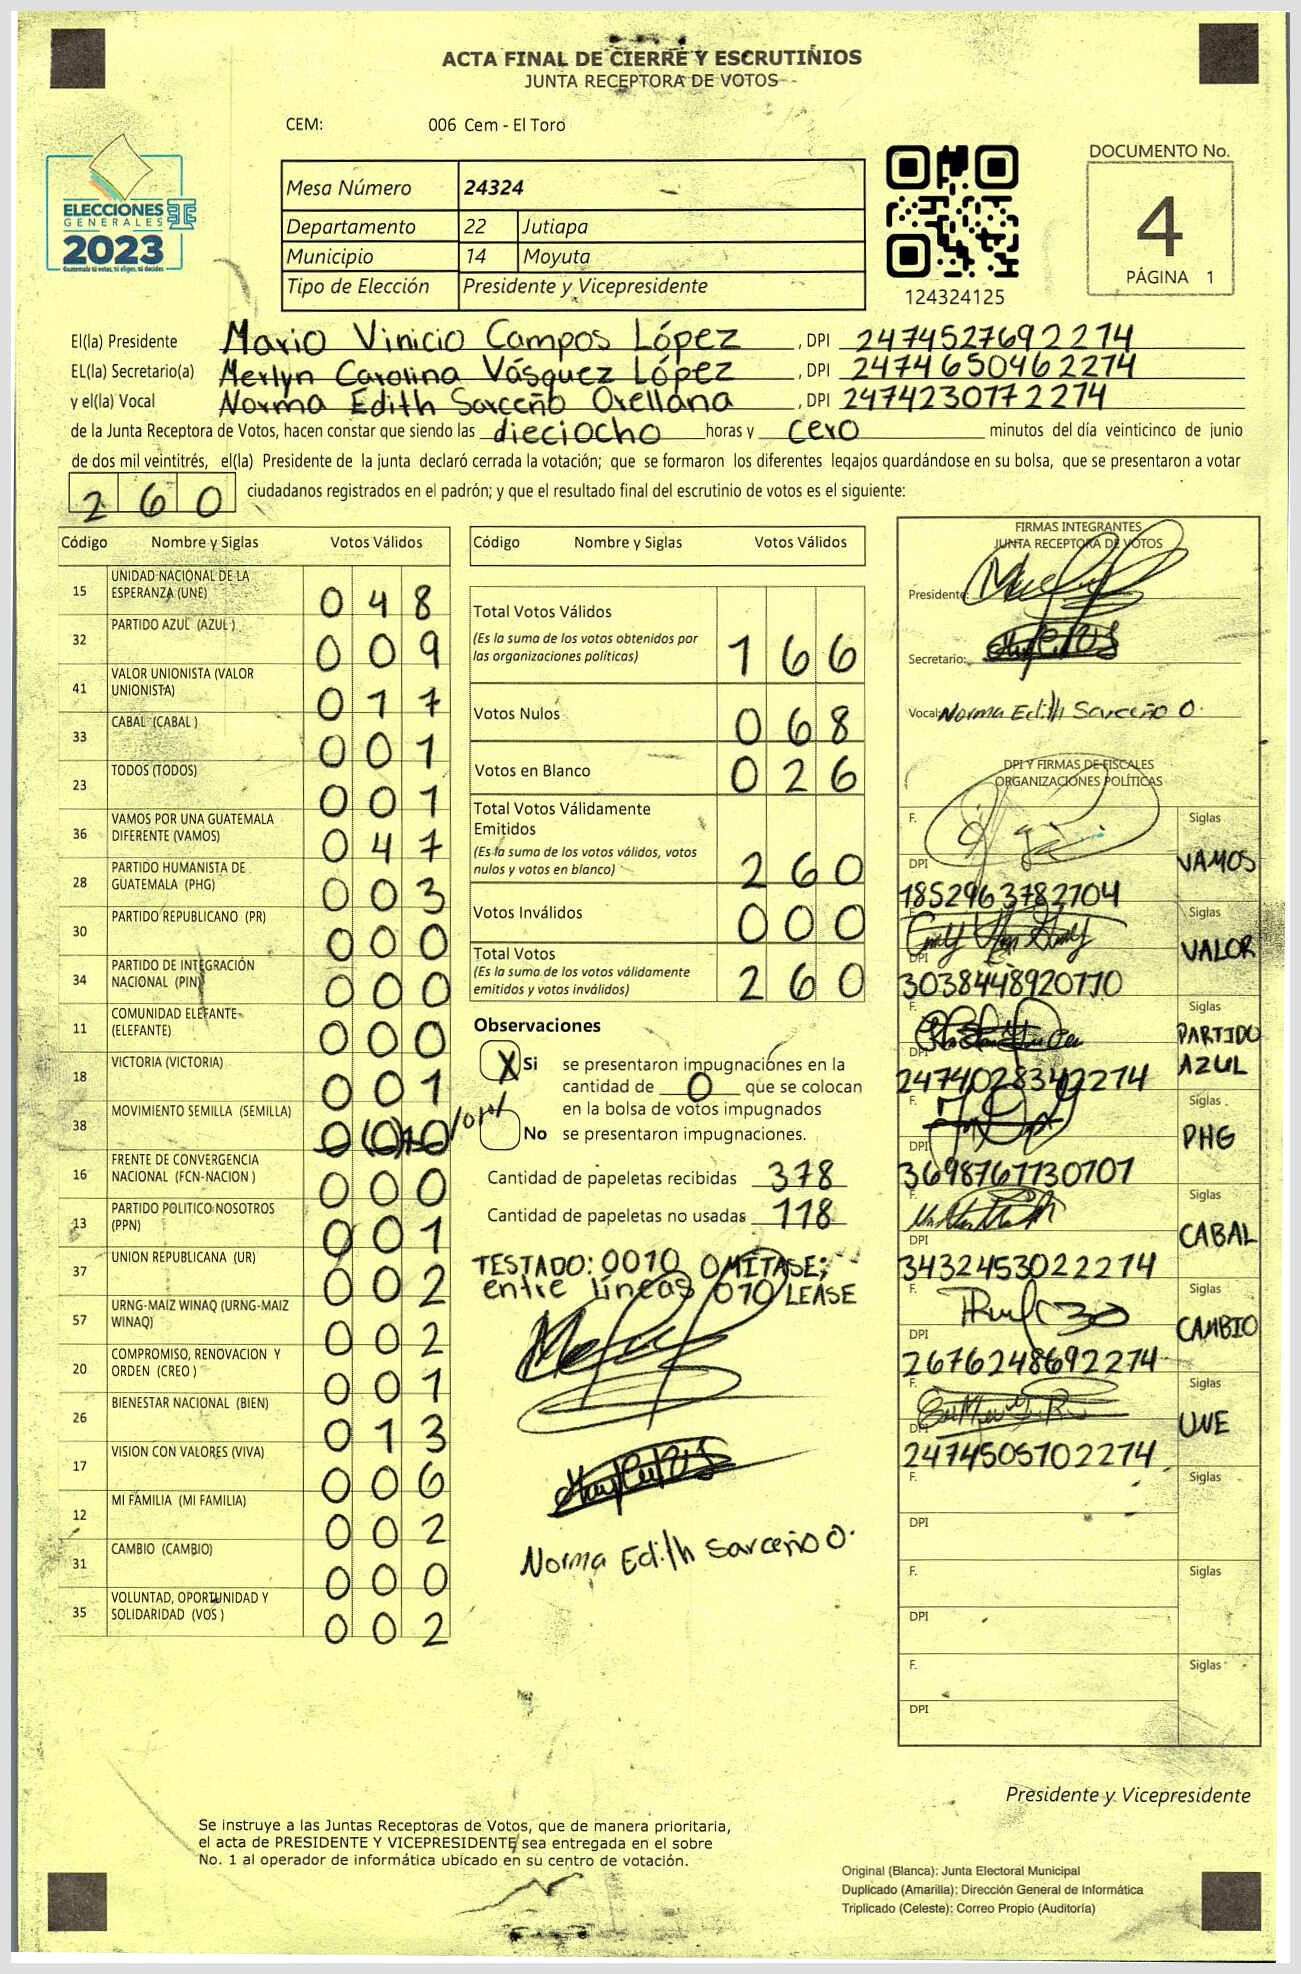 ACTA FINAL DE CIERRE Y ESCRUTINIOS
JUNTA RECEPTORA DE VOTOS
CEM: 006 Cem - El Toro
ELECCIONES
GENERALES
2023
Guatemala tú votas, tú eliges, tú decides
Mesa Número 24324
Departamento 22 Jutiapa
Municipio 14 Moyuta
Tipo de Elección Presidente y Vicepresidente
124324125
DOCUMENTO No.
4
PÁGINA 1
El(la) Presidente Mario Vinicio Campos López, DPI 2474527692274
EL(la) Secretario(a) Merlyn Carolina Vásquez López, DPI 2474650462274
y el(la) Vocal Norma Edith Sarceño Orellana, DPI 2474230772274
de la Junta Receptora de Votos, hacen constar que siendo las dieciocho horas y cero minutos del día veinticinco de junio
de dos mil veintitrés, el(la) Presidente de la junta declaró cerrada la votación; que se formaron los diferentes legajos guardándose en su bolsa, que se presentaron a votar
260 ciudadanos registrados en el padrón; y que el resultado final del escrutinio de votos es el siguiente:
Código Nombre y Siglas Votos Válidos
15 UNIDAD NACIONAL DE LA ESPERANZA (UNE) 048
32 PARTIDO AZUL (AZUL ) 009
41 VALOR UNIONISTA (VALOR UNIONISTA) 017
33 CABAL (CABAL ) 001
23 TODOS (TODOS) 001
36 VAMOS POR UNA GUATEMALA DIFERENTE (VAMOS) 047
28 PARTIDO HUMANISTA DE GUATEMALA (PHG) 003
30 PARTIDO REPUBLICANO (PR) 000
34 PARTIDO DE INTEGRACIÓN NACIONAL (PIN) 000
11 COMUNIDAD ELEFANTE (ELEFANTE) 000
18 VICTORIA (VICTORIA) 001
38 MOVIMIENTO SEMILLA (SEMILLA) 0(0)10 /010/
16 FRENTE DE CONVERGENCIA NACIONAL (FCN-NACION ) 000
13 PARTIDO POLITICO NOSOTROS (PPN) 001
37 UNION REPUBLICANA (UR) 002
57 URNG-MAIZ WINAQ (URNG-MAIZ WINAQ) 002
20 COMPROMISO, RENOVACION Y ORDEN (CREO ) 001
26 BIENESTAR NACIONAL (BIEN) 013
17 VISION CON VALORES (VIVA) 006
12 MI FAMILIA (MI FAMILIA) 002
31 CAMBIO (CAMBIO) 000
35 VOLUNTAD, OPORTUNIDAD Y SOLIDARIDAD (VOS ) 002
Código Nombre y Siglas Votos Válidos
Total Votos Válidos 166
(Es la suma de los votos obtenidos por
las organizaciones políticas)
Votos Nulos 068
Votos en Blanco 026
Total Votos Válidamente
Emitidos
(Es la suma de los votos válidos, votos
nulos y votos en blanco) 260
Votos Inválidos 000
Total Votos
(Es la suma de los votos válidamente
emitidos y votos inválidos) 260
Observaciones
X Si se presentaron impugnaciones en la
cantidad de 0 que se colocan
en la bolsa de votos impugnados
No se presentaron impugnaciones.
Cantidad de papeletas recibidas 378
Cantidad de papeletas no usadas 118
TESTADO: 0010 OMÍTASE;
entre líneas 010 LEASE
Norma Edith Sarceño O.
FIRMAS INTEGRANTES
JUNTA RECEPTORA DE VOTOS
Presidente:
Secretario:
Vocal: Norma Edith Sarceño O.
DPI Y FIRMAS DE FISCALES
ORGANIZACIONES POLÍTICAS
F. Siglas VAMOS
DPI 1852963782704
F. Siglas VALOR
DPI 3038448920770
F. Siglas PARTIDO AZUL
DPI 2474028342274
F. Siglas PHG
DPI 3698767730707
F. Siglas CABAL
DPI 3432453022274
F. Siglas CAMBIO
DPI 2676248692274
F. Siglas UNE
DPI 2474505702274
F. Siglas
DPI
F. Siglas
DPI
F. Siglas
DPI
Presidente y Vicepresidente
Se instruye a las Juntas Receptoras de Votos, que de manera prioritaria,
el acta de PRESIDENTE Y VICEPRESIDENTE sea entregada en el sobre
No. 1 al operador de informática ubicado en su centro de votación.
Original (Blanca): Junta Electoral Municipal
Duplicado (Amarilla): Dirección General de Informática
Triplicado (Celeste): Correo Propio (Auditoría)